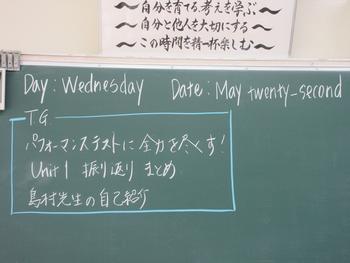 〜自分を育てる、考えを学ぶ〜
〜自分と他人を大切にする〜
〜この時間を精一杯楽しむ〜
Day : Wednesday Date : May twenty-second
T.G
パフォーマンステストに全力を尽くす!
Unit 1 振り返り まとめ
島村先生の自己紹介